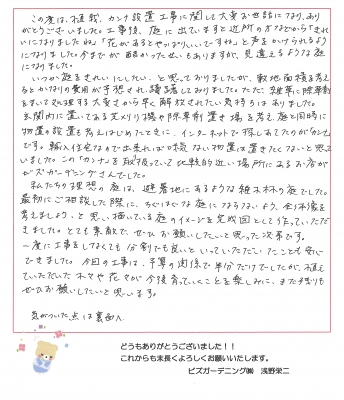 この度は、植栽、カンナ設置工事に関して大変お世話になり、あり
がとうございました。工事後、庭に出ていますと近所の方などから「きれ
いになりましたね」「花があるとやっぱりいいですね」と声をかけられるよう
になりました。今までが酷かったせいもありますが、見違えるような庭
になりました。
いつか庭をきれいにしたい、と思っておりましたが、敷地面積を考え
るとかなりの費用が予想され、躊躇しておりました。ただ、雑草に除草剤
をまいて処理する大変さから早く解放されたい気持ちはありました。
玄関内に置いてあるゴルフ用具や除草剤置き場を考え、庭と同時に
物置の設置を考えはじめたときに、インターネットで探しあてたのが「カンナ」
です。輸入住宅なので出来れば味気ない物置は置きたくないと思って
いました。この「カンナ」を取扱っていて比較的近い場所にあるお店がビ
ズガーデニングさんでした。
私たちの理想の庭は、避暑地にあるような雑木林の庭でした。
最初にご相談した際に、ちぐはぐな庭にならないよう、全体像を
考えましょう、と思い描いている庭のイメージを完成図として作っていただ
きました。とても素敵で、ぜひお願いしたいと思った次第です。
一度に工事をしなくても分割でも良いといっていただいたことも安心
できました。今回の工事は、予算の関係で半分だけでしたが、植え
ていただいた木々や花々が今後育っていくことを楽しみに、また残りも
ぜひお願いしたいと思います。
気がついた点は裏面へ
どうもありがとうございました！！
これからも末長くよろしくお願いいたします。
ビズガーデニング㈱ 浅野栄二